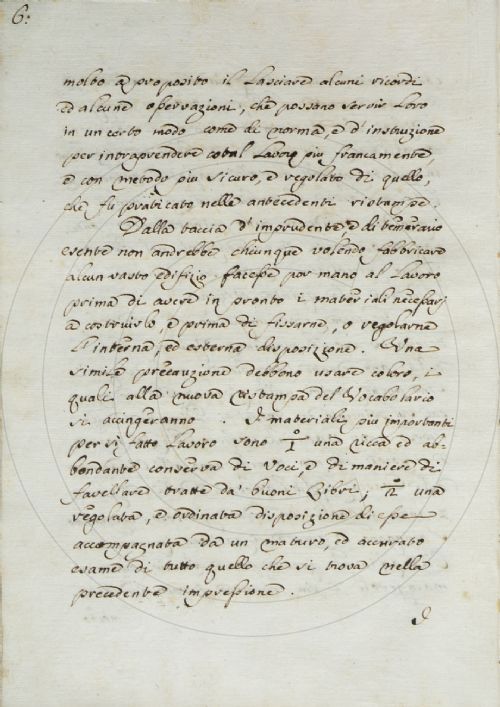 6:
molto a proposito il lasciare alcuni ricordi
ed alcune osservazioni, che possano servir loro
in un certo modo come di norma, e d'instruzione
per intraprendere cotal lavoro più francamente,
e con metodo più sicuro, e regolato di quello,
che fu praticato nelle antecedenti ristampe.
Dalla taccia d'imprudente e di temerario
esente non andrebbe chiunque volendo fabbricare
alcun vasto Edifizio facesse por mano al lavoro
prima di avere in pronto i materiali necessarj
a costruirlo, e prima di fissarne, o regolarne
l'interna, ed esterna disposizione. Una
simile precauzione debbono usare coloro, i
quali alla nuova ristampa del Vocabolario
si accingeranno. I materiali più importanti
per sì fatto lavoro sono 1º una ricca ed ab-
bondante conserva di Voci, e di maniere di
favellare tratte da' buoni Libri; 2º una
regolata, e ordinata disposizione di esse
accompagnata da un maturo, ed accurato
esame di tutto quello che si trova nella
precedente impressione.
I